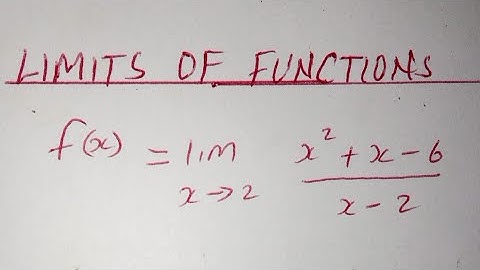 LIMITS OF FUNCTIONS
f(x) = lim x→2 x² + x - 6 / x - 2